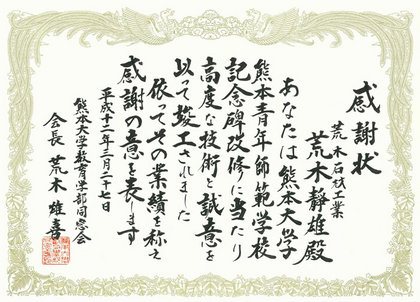 感謝状
荒木石材工業
荒木靜雄殿
あなたは熊本大学
熊本青年師範学校
記念碑改修に当たり
高度な技術と誠意を
以って竣工されました
依ってその業績を称え
感謝の意を表します
平成十二年三月二十七日
熊本大学教育学部同窓会
会長 荒木雄喜